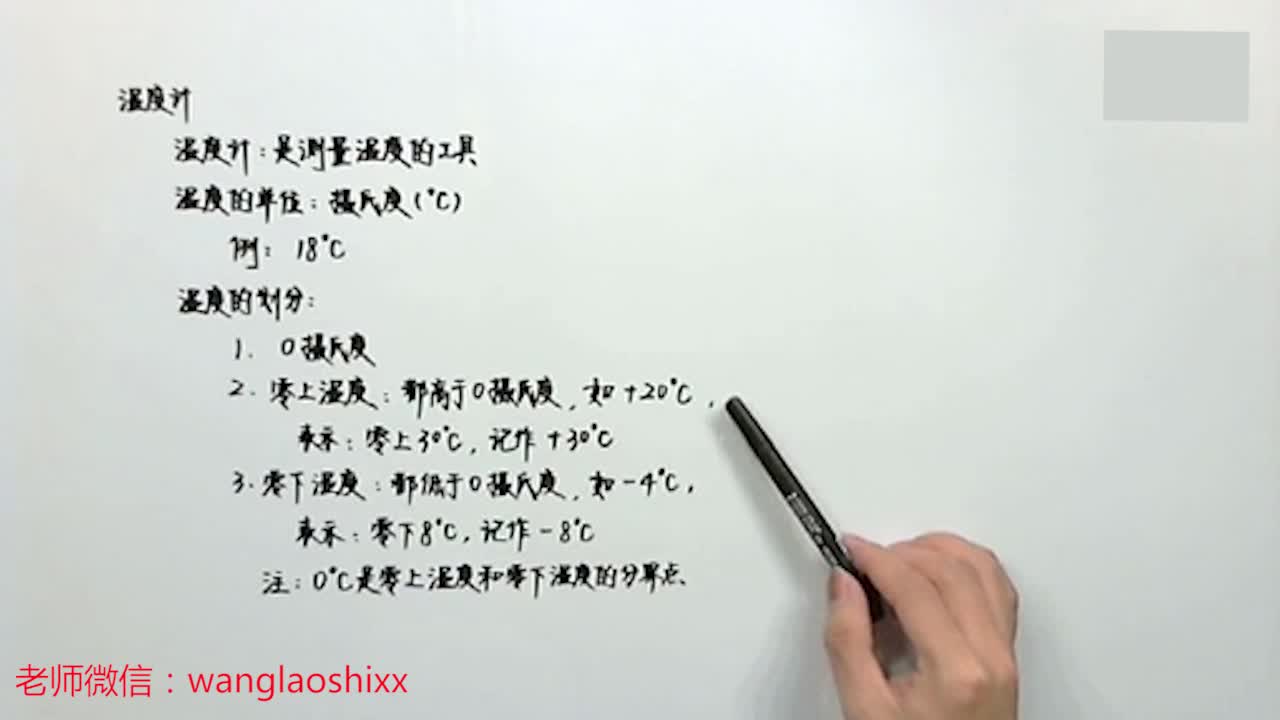 温度计
温度计：是测量温度的工具
温度的单位：摄氏度(°C)
例：18°C
温度的划分：
1. 0摄氏度
2. 零上温度：都高于0摄氏度，如+20°C，
表示：零上30°C，记作+30°C
3. 零下温度：都低于0摄氏度，如-4°C，
表示：零下8°C，记作-8°C
注：0°C是零上温度和零下温度的分界点、
老师微信：wanglaoshixx